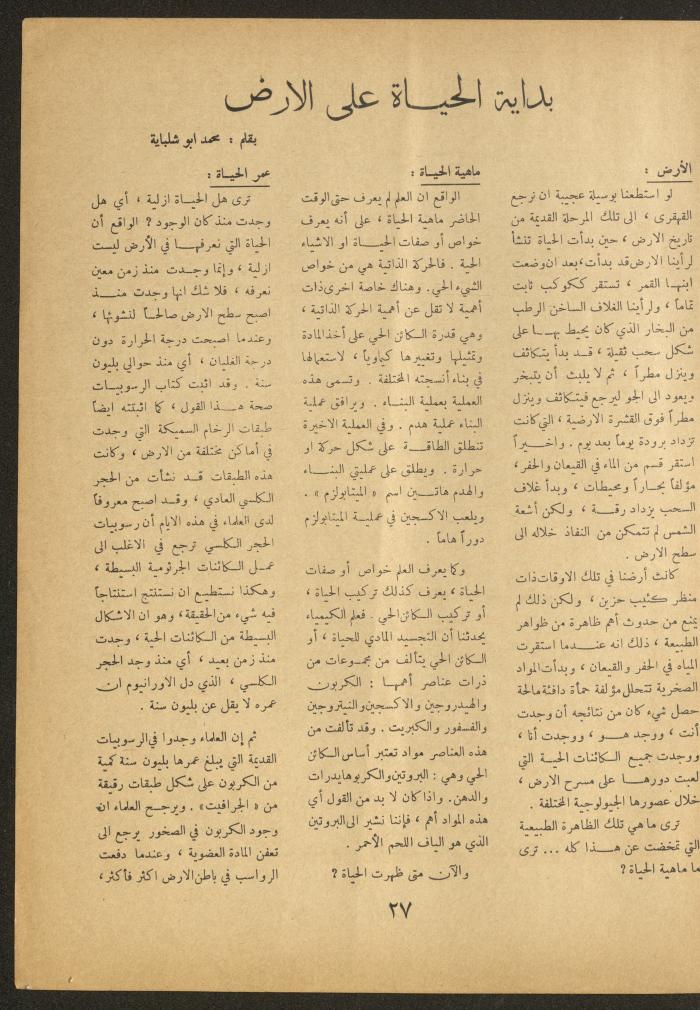 بداية الحيـاة على الارض
بقلم : محمد ابو شلباية
الأرض :
لو استطعنا بوسيلة عجيبة ان نرجع
القهقرى ، الى تلك المرحلة القديمة من
تاريخ الارض ، حين بدأت الحياة تنشأ
لرأينا الارض قد بدأت، بعد ان وضعت
ابنهـا القمر ، تستقر ككوكب ثابت
تماماً ، ولرأينا الغلاف الساخن الرطب
من البخار الذي كان يحيط بهـا على
شكل سحب ثقيلة ، قـد بدأ يتكاثف
وينزل مطراً ، ثم لا يلبث أن يتبخر
ويعود الى الجو ليرجع فيتكاثف وينزل
مطراً فوق القشرة الارضية ، التي كانت
تزداد برودة يوماً بعد يوم . واخـيراً
استقر قسم من الماء في القيعان والحفر ،
مؤلفاً بحـاراً ومحيطات ، وبدأ غلاف
السحب يزداد رقـة ، ولكن أشعة
الشمس لم تتمكن من النفاذ خلاله الى
سطح الارض .
كانت أرضنا في تلك الاوقات ذات
منظر كئيب حزين ، ولكن ذلك لم
يمنع من حدوث أهم ظاهرة من ظواهر
الطبيعة ، ذلك انه عنـدما استقرت
المياه في الحفر والقيعان ، وبدأت المواد
الصخرية تتحلل مؤلفة حمأة دافئة مالحة
حصل شيء كان من نتائجه أن وجدت
أنت ، ووجد هـو ، ووجدت أنا ،
ووجدت جميـع الكائنات الحية التي
لعبت دورهـا على مسرح الارض ،
خلال عصورها الجيولوجية المختلفة .
ترى ما هي تلك الظاهرة الطبيعية
التي تمخضت عن هـذا كله ... ترى
ما ماهية الحياة ؟
ماهية الحيـاة :
الواقع ان العلم لم يعرف حتى الوقت
الحاضر ماهية الحياة ، على أنه يعرف
خواص أو صفات الحيـاة او الاشياء
الحية . فالحركة الذاتية هي من خواص
الشيء الحي . وهناك خاصة اخرى ذات
أهمية لا تقل عن أهمية الحركة الذاتية ،
وهي قدرة الكائن الحي على أخذ المادة
وتمثيلها وتغييرها كيماوياً ، لاستعمالها
في بناء أنسجته المختلفة . وتسمى هذه
العملية بعملية البنـاء . ويرافق عملية
البناء عملية هدم . وفي العملية الاخيرة
تنطلق الطاقـة على شكل حركة او
حرارة . ويطلق على عمليتي البنـاء
والهدم هاتـين اسم « الميتابولزم » .
ويلعب الاكسجين في عمليـة الميتابولزم
دوراً هاماً .
وكما يعرف العلم خواص أو صفات
الحياة ، يعرف كذلك تركيب الحياة ،
أو تركيب الكائن الحي . فعلم الكيمياء
يحدثنا أن التجسيد المادي للحياة ، أو
الكائن الحي يتألف من مجمـوعات من
ذرات عناصر أهمهـا : الكربون
والهيدروجين والاكسجين والنيتروجين
والفسفور والكبريت . وقد تألفت من
هذه العناصر مواد تعتبر أساس الكائن
الحي وهي : البروتين والكربوهايدرات
والدهن . واذا كان لا بد من القول أي
هذه المواد أهم ، فإننا نشير الى البروتين
الذي هو الياف اللحم الأحمر .
والآن متى ظهرت الحياة ؟
عمر الحيـاة :
ترى هل الحيـاة ازلية ، أي هل
وجدت منذ كان الوجود ؟ الواقع أن
الحياة التي نعرفهـا في الأرض ليست
ازلية ، وإنما وجـدت منذ زمن معين
نعرفه ، فلا شك انها وجدت منـذ
اصبح سطح الارض صالحـاً لنشوئها ،
وعندما اصبحت درجة الحرارة دون
درجة الغليان ، أي منذ حوالي بليون
سنة . وقد اثبت كتاب الرسوبيـات
صحة هـذا القول ، كما اثبتته ايضاً
طبقات الرخام السميكة التي وجدت
في أماكن مختلفة من الارض ، وكانت
هذه الطبقات قـد نشأت من الحجر
الكلسي العادي ، وقـد اصبح معروفاً
لدى العلماء في هذه الايام أن رسوبيات
الحجر الكلسي ترجع في الاغلب الى
عمـل الكائنات الجرثومية البسيطة ،
وهكذا نستطيـع ان نستنتج استنتاجاً
فيه شيء من الحقيقة، وهو ان الاشكال
البسيطة من الكائنات الحية ، وجدت
منذ زمن بعيد ، أي منذ وجد الحجر
الكلسي ، الذي دل الاورانيوم ان
عمره لا يقل عن بليون سنة .
ثم إن العلماء وجدوا في الرسوبيات
القديمة التي يبلغ عمرها بليون سنة كمية
من الكربون على شكل طبقات رقيقة
من « الجرافيت » . ويرجـح العلماء ان
وجود الكربون في الصخور يرجع الى
تعفن المادة العضوية ، وعندما دفعت
الرواسب في باطن الارض اكثر فأكثر ،
٢٧